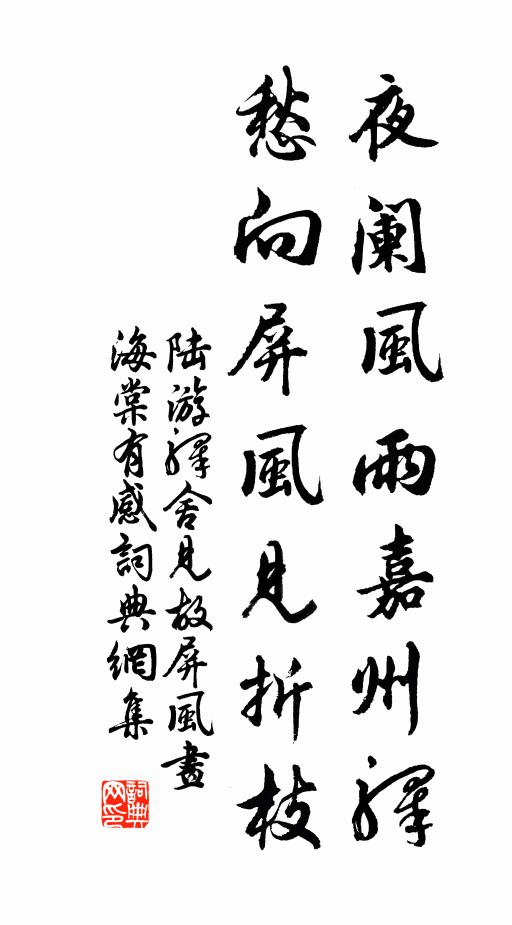 夜闌風雨嘉州驛
愁向屏風見折枝
陸游驛舍見故屏風畫
海棠有感詞典網集
詞典網印